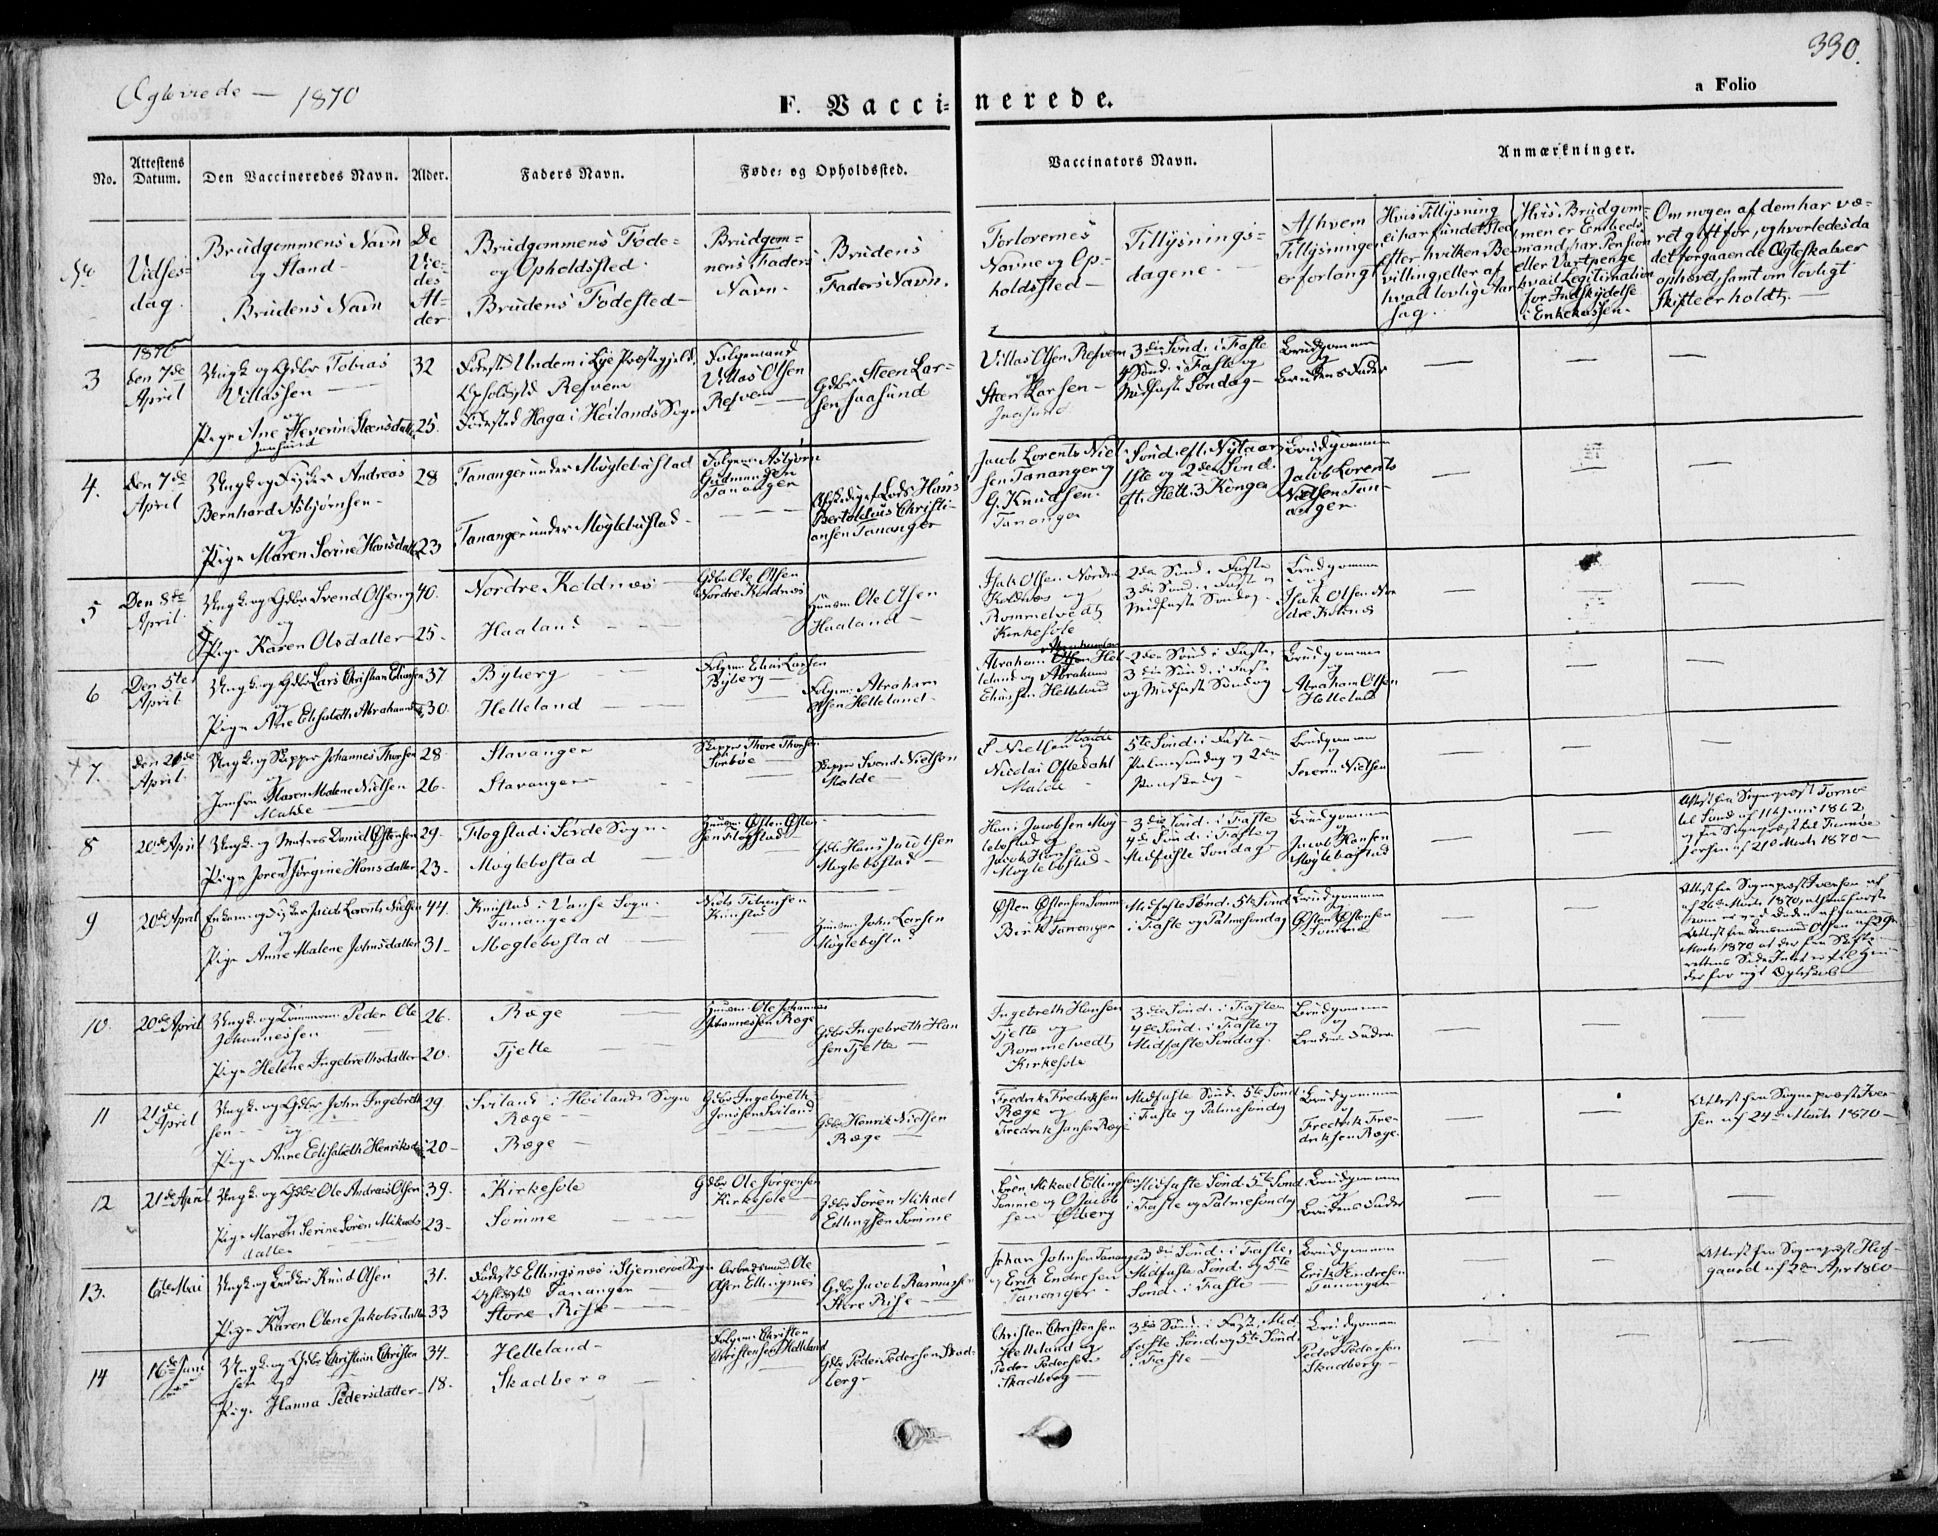 330.
Ægteviede — 1870
F. Vaccinerede.
a Folio
No.
Attestens Datum.
Den Vaccineredes Navn.
Alder.
Faders Navn.
Føde- og Opholdssted.
Vaccinators Navn.
Anmærkninger.
No
Vielsesdag.
Brudgommens Navn
og Stand —
Brudens Navn
De
Vie-
des
Al-
der
Brudgommens Føde-
og Opholdssted.
Brudens Fødested —
Brudgom-
mens Faders
Navn.
Brudens
Faders Navn.
Forlovernes
Navne og Op-
holdssted —
Tillysnings-
dagene. —
Af hvem
Tillysningen
er forlangt
Hvis Tillysning
ei har fundet Sted
efter hvilken Be-
villing, eller af
hvad lovlig Aar-
sag.
Hvis Brudgom-
men er Embeds-
mand, har Pension
eller Vartpenge
hvad Legitimation
for Indskydelse
i Enkekassen.
Om nogen af dem har væ-
ret gift før, og hvorledes da
det forgaaende Ægteskab er
ophævet, samt om lovligt
Skifte er holdt. —
1870
3
den 7de
April
Ungk. og Gdbr Tobias
Villassen
og
Pige Ane Severine Steensdatter
Jaasund
32
25.
Fødested Undem i Lye Præstegjeld,
Opholdsstd Refvem
Fødested Haga i Høilands Sogn
Folgemand
Villas Olsen
Refvem
Gdbr Steen Lar-
sen Jaasund
Villas Olsen Refvem
og
Steen Larsen —
Jaasund
3die Sønd. i Faste
4 Sønd. i Faste og
Midfaste Søndag —
Brudgommen
og
Brudens Fader
4.
Den 7de
April
Ungk. og Fisker Andreas
Bernhard Asbjørnsen —
og
Pige Maren Serine Hansdatter
28
23
Tananger under Møglebustad
Tananger under Møglebustad.
Folgem: Asbjørn
Gudmundsen
Tananger
Afskediget Lods Hans
Bertoldius Christi-
ansen Tananger
Jacob Lorents Niel-
sen Tananger og
G. Knudsen.
Tananger
Sønd. eft. Nytaar,
1ste og 2den Sønd.
eft. Hell. 3 Konger
Brudgommen
og
Jacob Lorents
Nielsen Tan-
anger.
5
Den 8te
April.
Ungk. og Gdbr Svend Olsen
og
Pige Karen Olsdatter
40.
25.
Nordre Koldnæs
Haaland
Gdbr Ole Olsen
Nordre Koldnæs
Huusm: Ole Olsen
Haaland —
Isak Olsen Nordre
Koldnæs og
Rommelvedt
Kirkesole
2den Sønd. i Faste
3die Sønd. i Faste og
Midfaste Søndag
Brudgommen
og
Isak Olsen Nor-
dre Kolnes
6
Den 5te
April
Ungk. og Gdbr Lars Christian Eliassen
og
Pige Ane Elisabeth Abrahamsdtr
37
30.
Byberg
Helleland
Folgem: Elias Larsen
Byberg —
Folgem: Abraham
Olsen Helleland
Abraham Olsen Hel-
leland og Abraham
Eliassen Helleland
2den Sønd. i Faste,
3die Sønd. i Faste
og Midfaste Søndag
Brudgommen
og
Abraham Olsen
Helleland
7.
den 20de
April.
Ungk. og Skipper Johannes Thorsen
og
Jomfru Maren Malene Nielsen
Malde
28
26.
Stavanger
Stavanger
Skipper Thore Thorsen
Sørbøe
Skipper Svend Nielsen
Malde
S Nielsen Malde
og
Nicolai Oftedahl
Malde
5te Sønd. i Faste —
Palmesøndag og 2den
Paaskedag —
Brudgommen
og
Severin Nielsen
8
20de April
Ungk. og Matros Daniel Østensen
og
Pige Joren Jørgine Hansdatter
29.
23.
Flogstad i Sørde Sogn
Møglebostad
Huusm: Østen Østen-
sen Flogstad
Gdbr Hans Jacobsen
Møglebostad
Hans Jacobsen Møg-
lebostad og
Jacob Hansen
Møglebostad.
3die Sønd. i Faste
4de Sønd. i Faste og
Midfaste Søndag
Brudgommen
og
Jacob Hansen
Møglebostad
Attest fra Sognepræst Tornøe
til Sand af 11te Juni 1862
og fra Sognepræst til
af 21de Marts 1870 —
9
20de April
Enkem. og Fisker Jacob Lorents Nielsen
og
Pige Anne Malene Johnsdatter
44.
31.
Kunstad i Vanse Sogn.
Tananger
Møglebostad
Niels Tobiasen
Kunstad
Huusm: John Larsen
Møglebostad
Østen Østensen Somme
Berk Tananger
Midfaste Sønd. 5te Sønd.
i Faste og Palmesøndag
Brudgommen
og
Østen Østensen
Somme
Attest fra Sognepræst Iversen af
af 26de Marts 1870,
Attest fra Lensmand Olsen
Marts 1870 at der fra Skifte-
rettens Side Intet er til Hin-
der for nyt Ægteskab
10
20de April
Ungk. og Tømmerm: Peder Ole
Johannessen
og
Pige Helene Ingebrethsdatter
26.
20.
Ræge
Tjelte
Huusm: Ole Johannes
Johannessen Ræge
Gdbr Ingebreth Han-
sen Tjelte —
Ingebreth Hansen
Tjelte og
Rommelvedt,
Kirkesole
3die Sønd. i Fasten
4de Sønd. i Faste og
Midfaste Søndag.
Brudgommen
og
Brudens Fader
11
21de
April
Ungk. og Gdbr John Ingebreth-
sen — og
Pige Anne Elisabeth Henriksdtr
29
20
Sviland i Høilands Sogn
Ræge
Ræge
Gdbr Ingebreth
Jonssen Sviland
Gdbr Henrik Nielsen
Ræge
Fredrik Fredriksen
Ræge og
Fredrik Jansen Ræge
Midfaste Sønd. 5te Sønd.
i Faste og Palmesøndag
Brudgommen
og
Fredrik Fre-
driksen Ræge.
Attest fra Sognepræst Iver-
sen af 24de Marts 1870 —
12
21de April
Ungk. og Gdbr Ole Andreas Olsen
og
Pige Maren Serine Søren Mikaels-
datter
39.
23
Kirkesole
Somme
Gdbr Ole Jørgensen
Kirkesole
Gdbr Søren Mikael
Ellingsen Somme
Søren Mikael Ellingsen
Somme og O Jacob-
sen Ølberg
Midfaste Sønd. 5te Sønd.
i Faste og Palmesøndag
Brudgommen
og
Brudens Fader
13.
6te Mai
Ungk. og Knud Olsen
og
Pige Karen Olene Jakobsdatter
31.
33
Fødestd Ellingsnæs i Stjernerø Sogn
Opholdsstd Tananger
Store Risje
Arbeidsmand Ole
Olsen Ellingsnæs
Gdbr Jacob Rasmussen
Store Risje —
Johan Johnsen Tananger
og Erik Endresen
Tananger.
3die Sønd. i Faste,
Midfaste Sønd. og 5te
Sønd. i Faste —
Brudgommen
og
Erik Endresen
Tananger
Attest fra Sognepræst Hof-
gaard af 2den Apr 1860
14
16de Juni
Ungk. og Gdbr Christian Christen-
sen og
Pige Hanna Pedersdatter
34.
18.
Helleland
Skadberg
Folgem: Christen
Christensen Helleland
Gdbr Peder Pedersen Skad-
berg —
Christen Christensen
Helleland og
Peder Pedersen
Skadberg —
3die Sønd. i Faste, Mid-
faste Sønd. og 5te Sønd.
i Faste —
Brudgommen
og
Peder Pedersen
Skadberg —